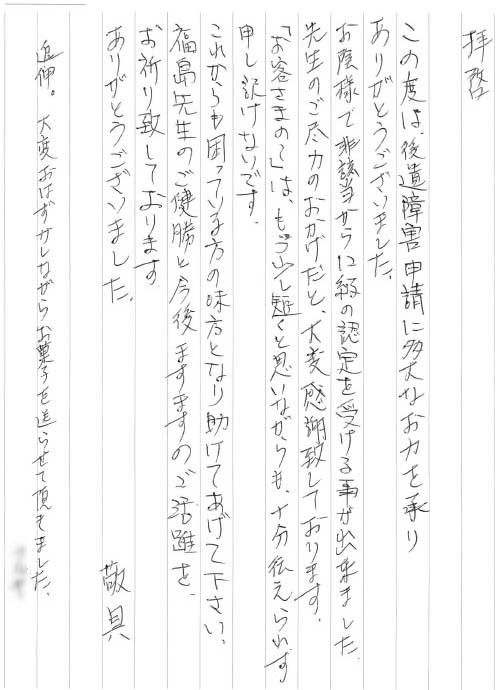 拝啓
この度は、後遺障害申請に多大なお力を承り
ありがとうございました。
お陰様で非該当から12級の認定を受ける事が出来ました。
先生のご尽力のおかげだと、大変感謝致しております。
「お客さまの〜」は、もう少し短くと思いながらも、十分伝えられず
申し訳けないです。
これからも困っている方の味方となり助けてあげて下さい。
福島先生のご健勝と今後ますますのご活躍を、
お祈り致しております。
ありがとうございました。
敬具
追伸。大変おはずかしながらお菓子を送らせて頂きました。